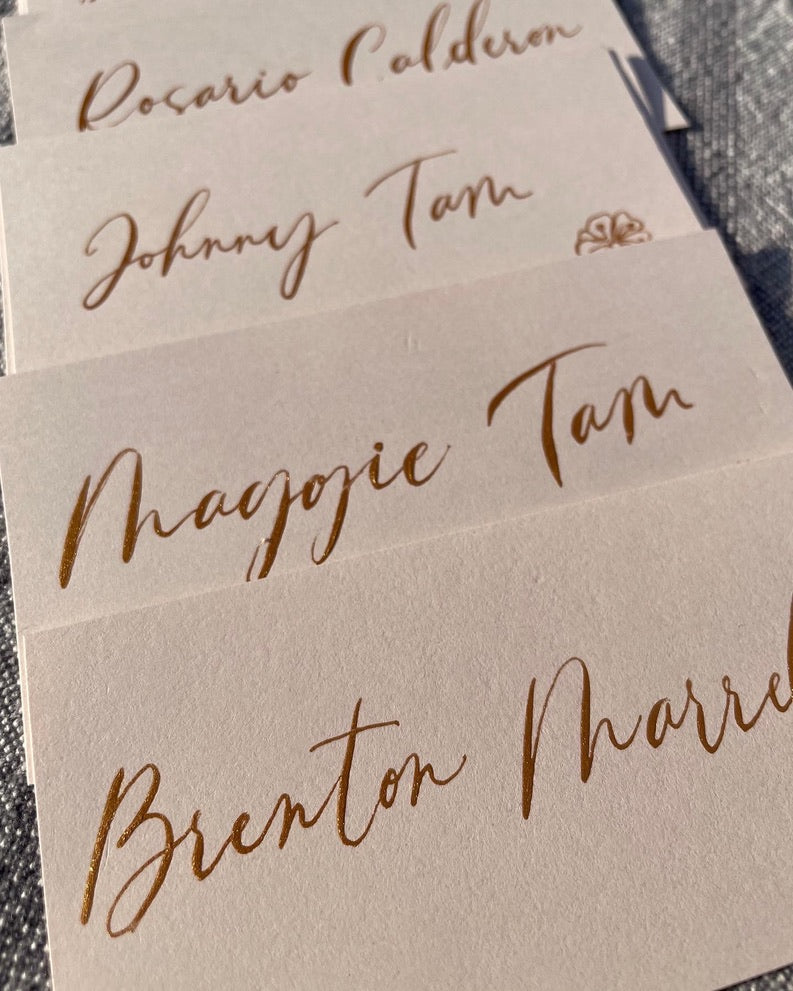 Rosario Calderon
Johnny Tam
Maggie Tam
Brenton